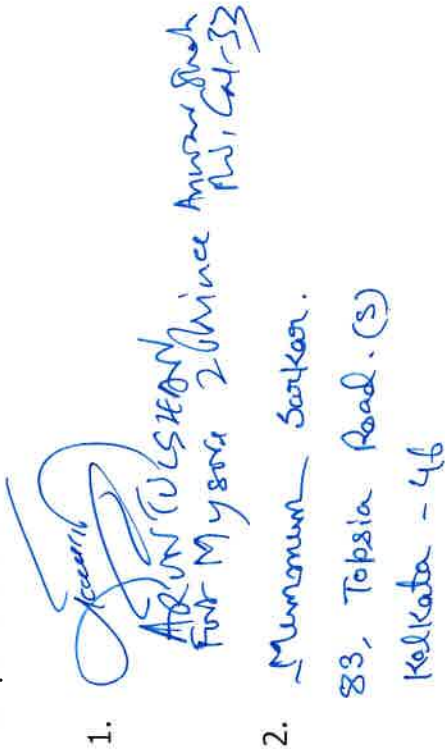 1.
ARUN TULSHEAN
Fort Mysore 2 Prince Anwar Shah
Rd, Cal-33
2. Munmun Sarkar.
83, Topsia Road. (S)
Kolkata - 46